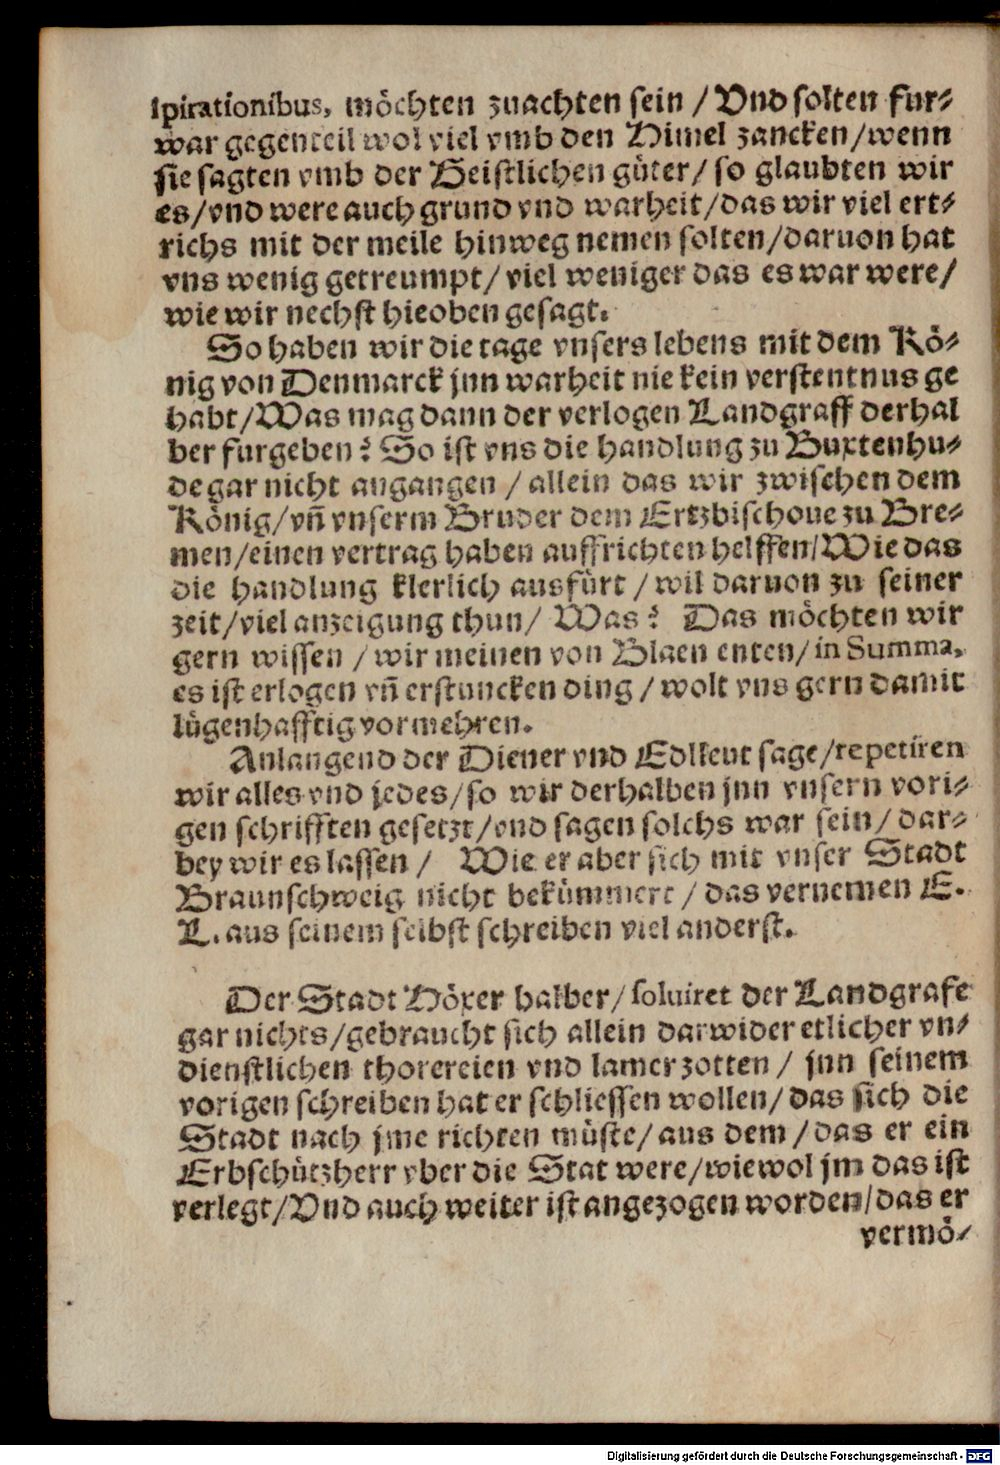 spirationibus, möchten zuachten sein / Vnd solten fur⸗
war gegenteil wol viel vmb den Himel zancken/wenn
sie sagten vmb der Geistlichen güter/ so glaubten wir
es/vnd were auch grund vnd warheit/das wir viel ert⸗
richs mit der meile hinweg nemen solten/daruon hat
vns wenig getreumpt/ viel weniger das es war were/
wie wir nechst hieoben gesagt.
So haben wir die tage vnsers lebens mit dem Kö⸗
nig von Denmarck jnn warheit nie kein verstentnus ge
habt/Was mag dann der verlogen Landgraff derhal
ber furgeben? So ist vns die handlung zu Buxtenhu⸗
de gar nicht angangen / allein das wir zwischen dem
König/vñ vnserm Bruder dem Ertzbischoue zu Bre⸗
men/einen vertrag haben auffrichten helffen/Wie das
die handlung klerlich ausfürt / wil daruon zu seiner
zeit/viel anzeigung thun/ Was? Das möchten wir
gern wissen / wir meinen von Blaen enten/ in Summa,
es ist erlogen vñ erstuncken ding / wolt vns gern damit
lügenhafftig vormehren.
Anlangend der Diener vnd Edlleut sage/repetiren
wir alles vnd jedes/so wir derhalben jnn vnsern vori⸗
gen schrifften gesetzt/vnd sagen solchs war sein/ dar⸗
bey wir es lassen / Wie er aber sich mit vnser Stadt
Braunschweig nicht bekümmert / das vernemen E.
L. aus seinem selbst schreiben viel anderst.
Der Stadt Höxer halber/ soluiret der Landgrafe
gar nichts/gebraucht sich allein darwider etlicher vn⸗
dienstlichen thorereien vnd lamer zotten / jnn seinem
vorigen schreiben hat er schliessen wollen/ das sich die
Stadt nach jme richten müste/ aus dem / das er ein
Erbschützherr vber die Stat were/wiewol jm das ist
verlegt/Vnd auch weiter ist angezogen worden/das er
vermö⸗
Digitalisierung gefördert durch die Deutsche Forschungsgemeinschaft - DFG